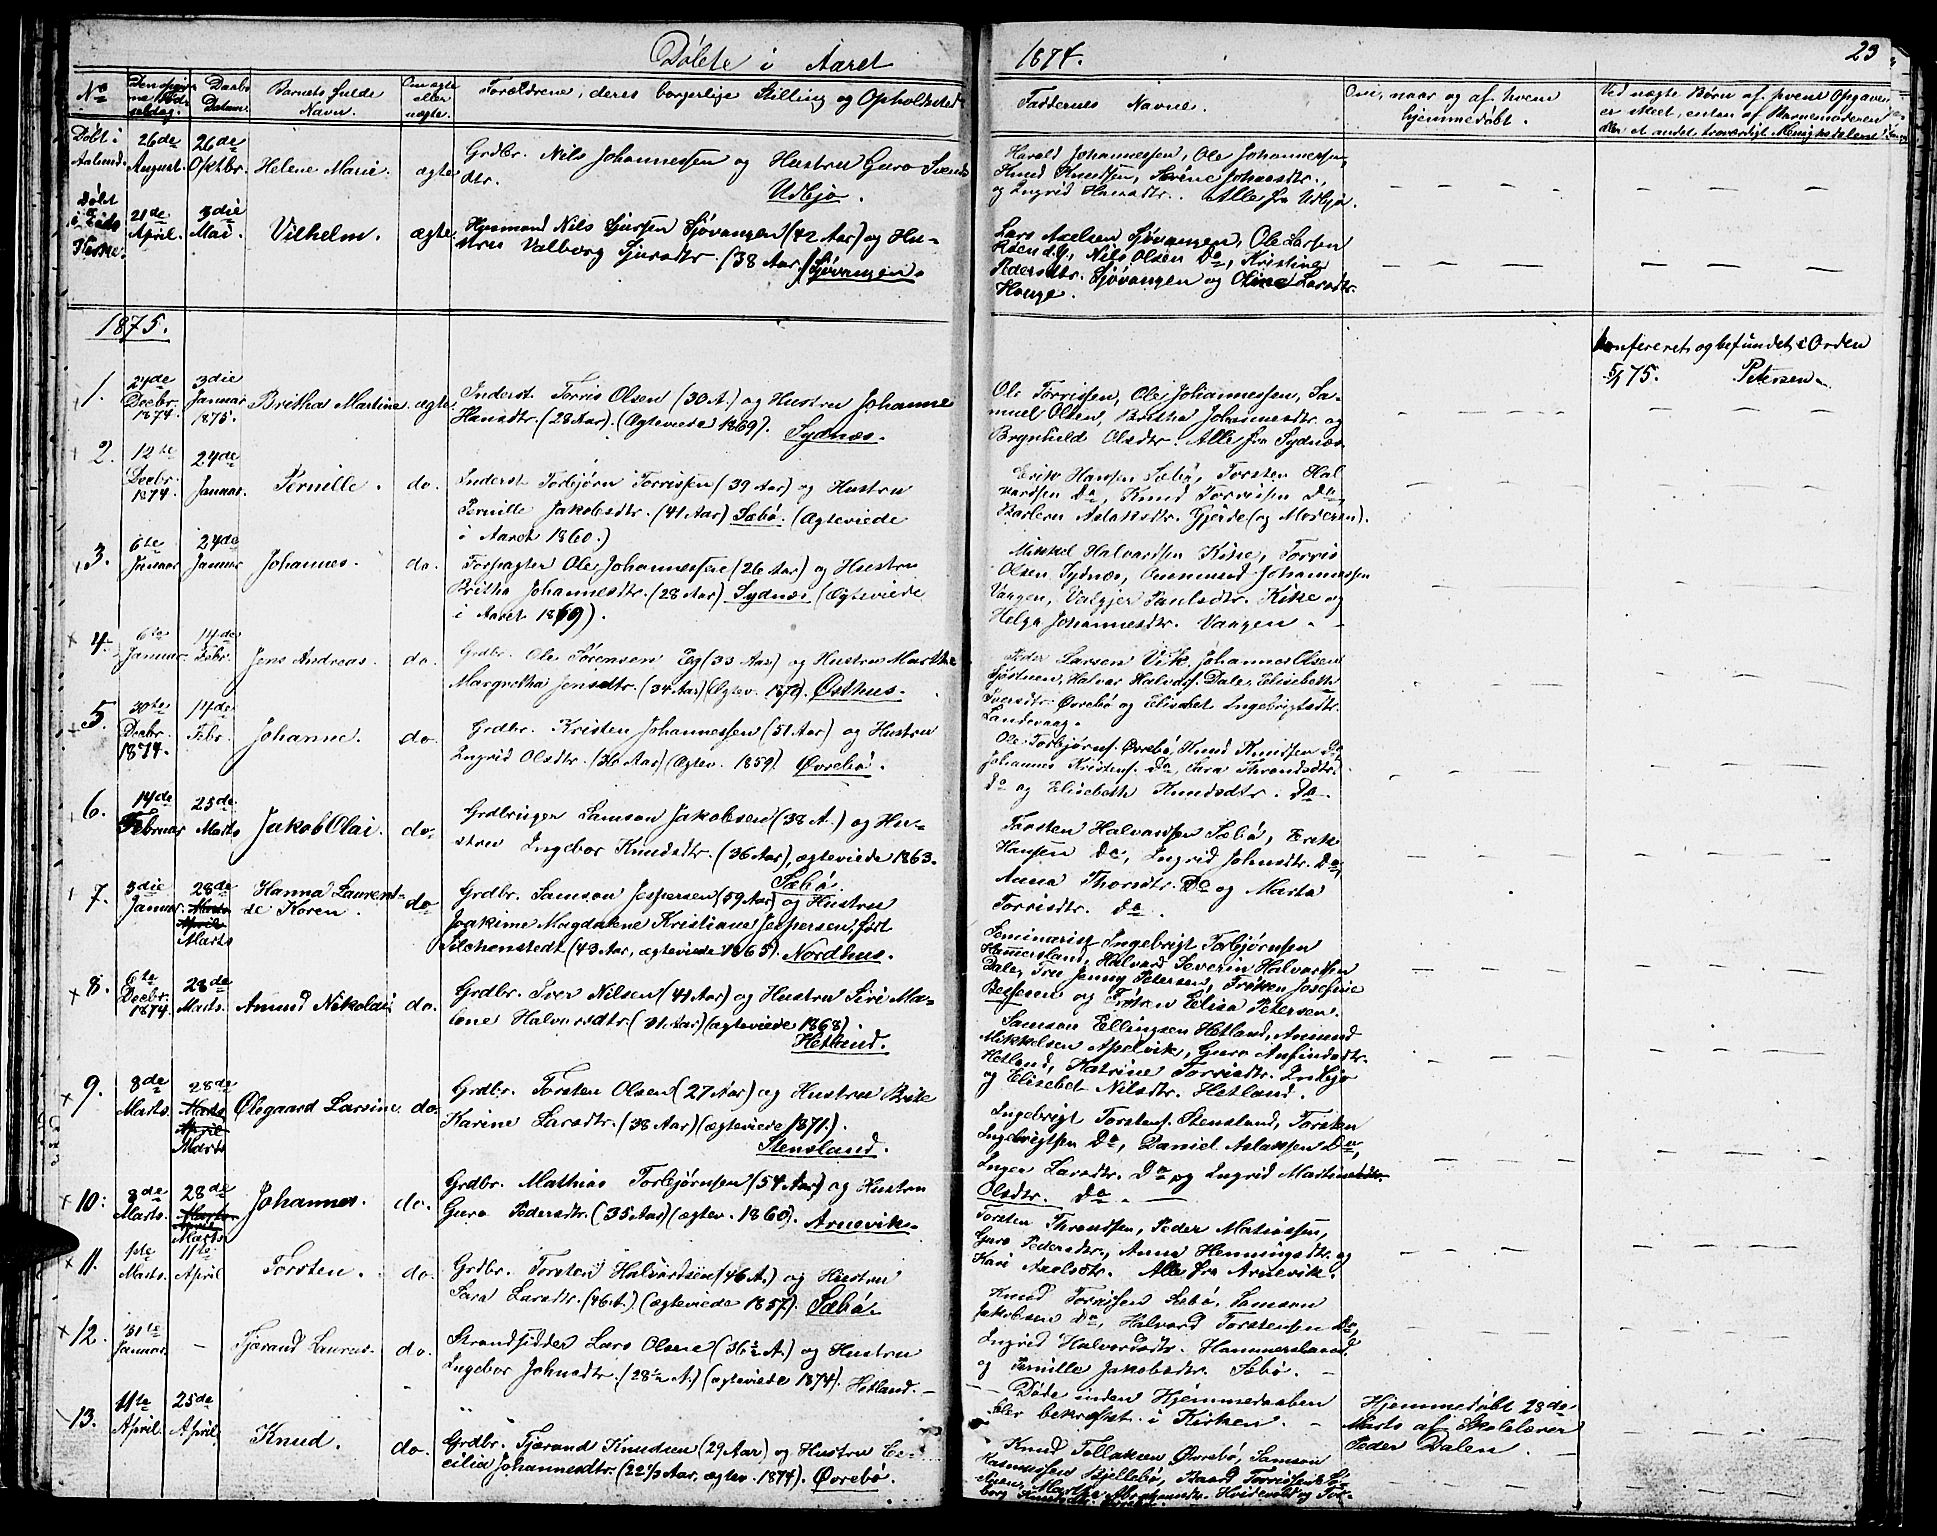 Døbte i Aaret
1874.
23
No
Barnets fulde Navn.
Om ægte eller uægte.
Forældrene, deres borgerlige Stilling og Opholdsted
Faddernes Navne.
Om, naar og af hvem hjemmedøbt.
Døbt i
26de August. 26de Oktbr. Helene Marie. ægte
Grdbr. Nils Johannessen og Hustru Guro Svends
dtr.
Udbjo.
Harald Johannessen, Ole Johannessen,
Knud Knudsen, Serine Johansdtr.,
og Ingrid Hansdtr. Alle fra Udbjo.
Døbt
21de April. 3die Mai. Vilhelm. ægte.
Husmand Nils Sjursen Sjøvangen (42 Aar) og Hu-
stru Valborg Sjursdtr. (38 Aar) Sjøvangen.
Lars Axelsen Sjøvangen, Ole Larsen
Nils Olsen Do, Kristine
Pedersdtr. Sjøvangen og Oline Larsdtr.
Hauge.
1875.
Konfereret og befundet i Orden
5/1 75. Petersen
1. 24de Decbr. 1874. 3die Januar 1875. Britha Martine. ægte.
Inderst Torris Olsen (30 A.) og Hustru Johanne
Hansdtr. (28 Aar). (Ægteviede 1869). Sydnæs.
Ole Torrissen, Ole Johannessen, Sa-
muel Olsen, Britha Johannesdtr. og
Brynhild Olsdtr. Alle fra Sydnæs.
2. 12te Decbr. 1874. 24de Januar. Pernille. do.
Inderst Torbjørn Torrissen (39 Aar) og Hustru
Pernille Jakobsdtr. (41 Aar) Sæbø. (Ægteviede
i Aaret 1860.)
Erik Hansen Sæbø, Torsten Hal-
vardsen Do, Knud Torrissen Do
Aslaksdtr. Gjerde (og Moderen).
3. 6te Januar 24de Januar Johannes. do.
Forpagter Ole Johannessen (26 Aar) og Hustru
Britha Johannesdtr. (28 Aar) Sydnæs (Ægteviede
i Aaret 1869).
Mikkel Halvardsen Kike, Torris
Olsen Sydnæs, Johannessen
Vaagen, Valgjer Paulsdtr. Kike og
Helga Johannesdtr. Vaagen.
4. 6te Januar. 14de Febr. Jens Andreas. do.
Grdbr. Ole Sørensen Eg (33 Aar) og Hustru Marthe
Margretha Jensdtr. (34 Aar) (Ægtev. 1874). Østhus.
Peder Larsen Vik, Johannes Olsen
Halvar Halvds. Dale, Elisabeth
Iversdtr. Øvrebø og Elisabet Ingebrigtsdtr.
Landevaag.
5. 30te Decbr. 1874. 14de Febr. Johanne. do.
Grdbr. Kristen Johannessen (51 Aar) og Hustru
Ingrid Olsdtr. (36 Aar) (Ægtev. 1859). Øvrebø.
Ole Torbjørns. Øvrebø, Knud Knudsen Do
Johannes Kristens. Do, Sara Throndsdtr.
Do og Elisabeth Knudsdtr. Do
6. 14de Februar 25de Marts Jakob Olai. do.
Grdbruger Samson Jakobsen (38 A.) og Hu-
stru Ingebor Knudsdtr. (36 Aar), ægteviede 1863.
Sæbø.
Torsten Halvardsen Sæbø, Erik
Hansen Do, Ingrid Johnsdtr. Do,
Anna Thorsdtr. Do og Marta
Torrisdtr. Do.
7. 3die Januar. 28de Marts April Marts Hanna Laurent-
se Koren. do.
Grdbr. Samson Jespersen (59 Aar) og Hustru
Joakime Magdalene Kristiane Jespersen, født
(43 Aar, ægteviede 1865). Nordhus.
Seminarist Ingebrigt Torbjørnsen
Hammersland, Halvard Severin Halvardsen
Dale, Fru Jenny Petersen, Frøken Josefine
og Frøken Elisa Petersen.
8. 6te Decbr. 1874 28de Marts. Amund Nikolai do.
Grdbr. Iver Nilsen (41 Aar) og Hustru Siri Ma-
lene Halvarsdtr. (31 Aar) (ægteviede 1868).
Hetland.
Samson Ellingsen Hetland, Amund
Mikkelsen Apelvik, Guro Anfindsdtr.
Hetland, Katrine Torrisdtr. Indbjo
og Elisabet Nilsdtr. Hetland.
9. 8de Marts. 28de Marts April Marts Ølegaard Larsine do.
Grdbr. Torsten Olsen (27 Aar) og Hustru Brite
Karine Larsdtr. (38 Aar) (ægteviede 1871.).
Stensland.
Ingebrigt Torstens. Stensland, Torsten
Ingebrigtsen Do, Daniel Aslaksen Do,
Inger Larsdtr. Do og Ingrid
Olsdtr. Do.
10. 8de Marts. 28de Marts Johannes. do.
Grdbr. Mathias Torbjørnsen (54 Aar) og Hustru
Guro Pedersdtr. (35 Aar) (ægtev. 1860). Arnevik.
Torsten Throndsen, Peder Matiassen,
Guro Pedersdtr., Anna Henningsdtr. og
Kari Axelsdtr. Alle fra Arnevik.
11. 1ste Marts. 11te April Torsten. do.
Grdbr. Torsten Halvardsen (46 A.) og Hustru
Sara Larsdtr. (46 A.) (ægteviede 1857). Sæbø.
Knud Torrissen Sæbø, Samson
Jakobsen Do, Halvard Torstensen Do,
Ingrid Halvardsdtr. Hammersland
og Pernille Jakobsdtr. Sæbø.
12. 31te Januar. – Tjærand Laurus. do.
Strandsidder Lars Olsen (36½ A.) og Hustru
Ingebor Johnsdtr. (28½ A.) (ægteviede 1874). Hetland.
Døde inden Hjemmedaaben
blev bekræftet i Kirken.
Hjemmedøbt 28de
Marts af Skolelærer
Peder Dalen.
13. 11te April. 25de April. Knud. do.
Grdbr. Tjærand Knudsen (29 Aar) og Hustru Ce-
cilia Johannesdtr. (22½ Aar, ægtev. 1874). Øvrebø.
Knud Tollaksen Øvrebø, Samson
Rasmussen Bjellebø, Baard Torrissen